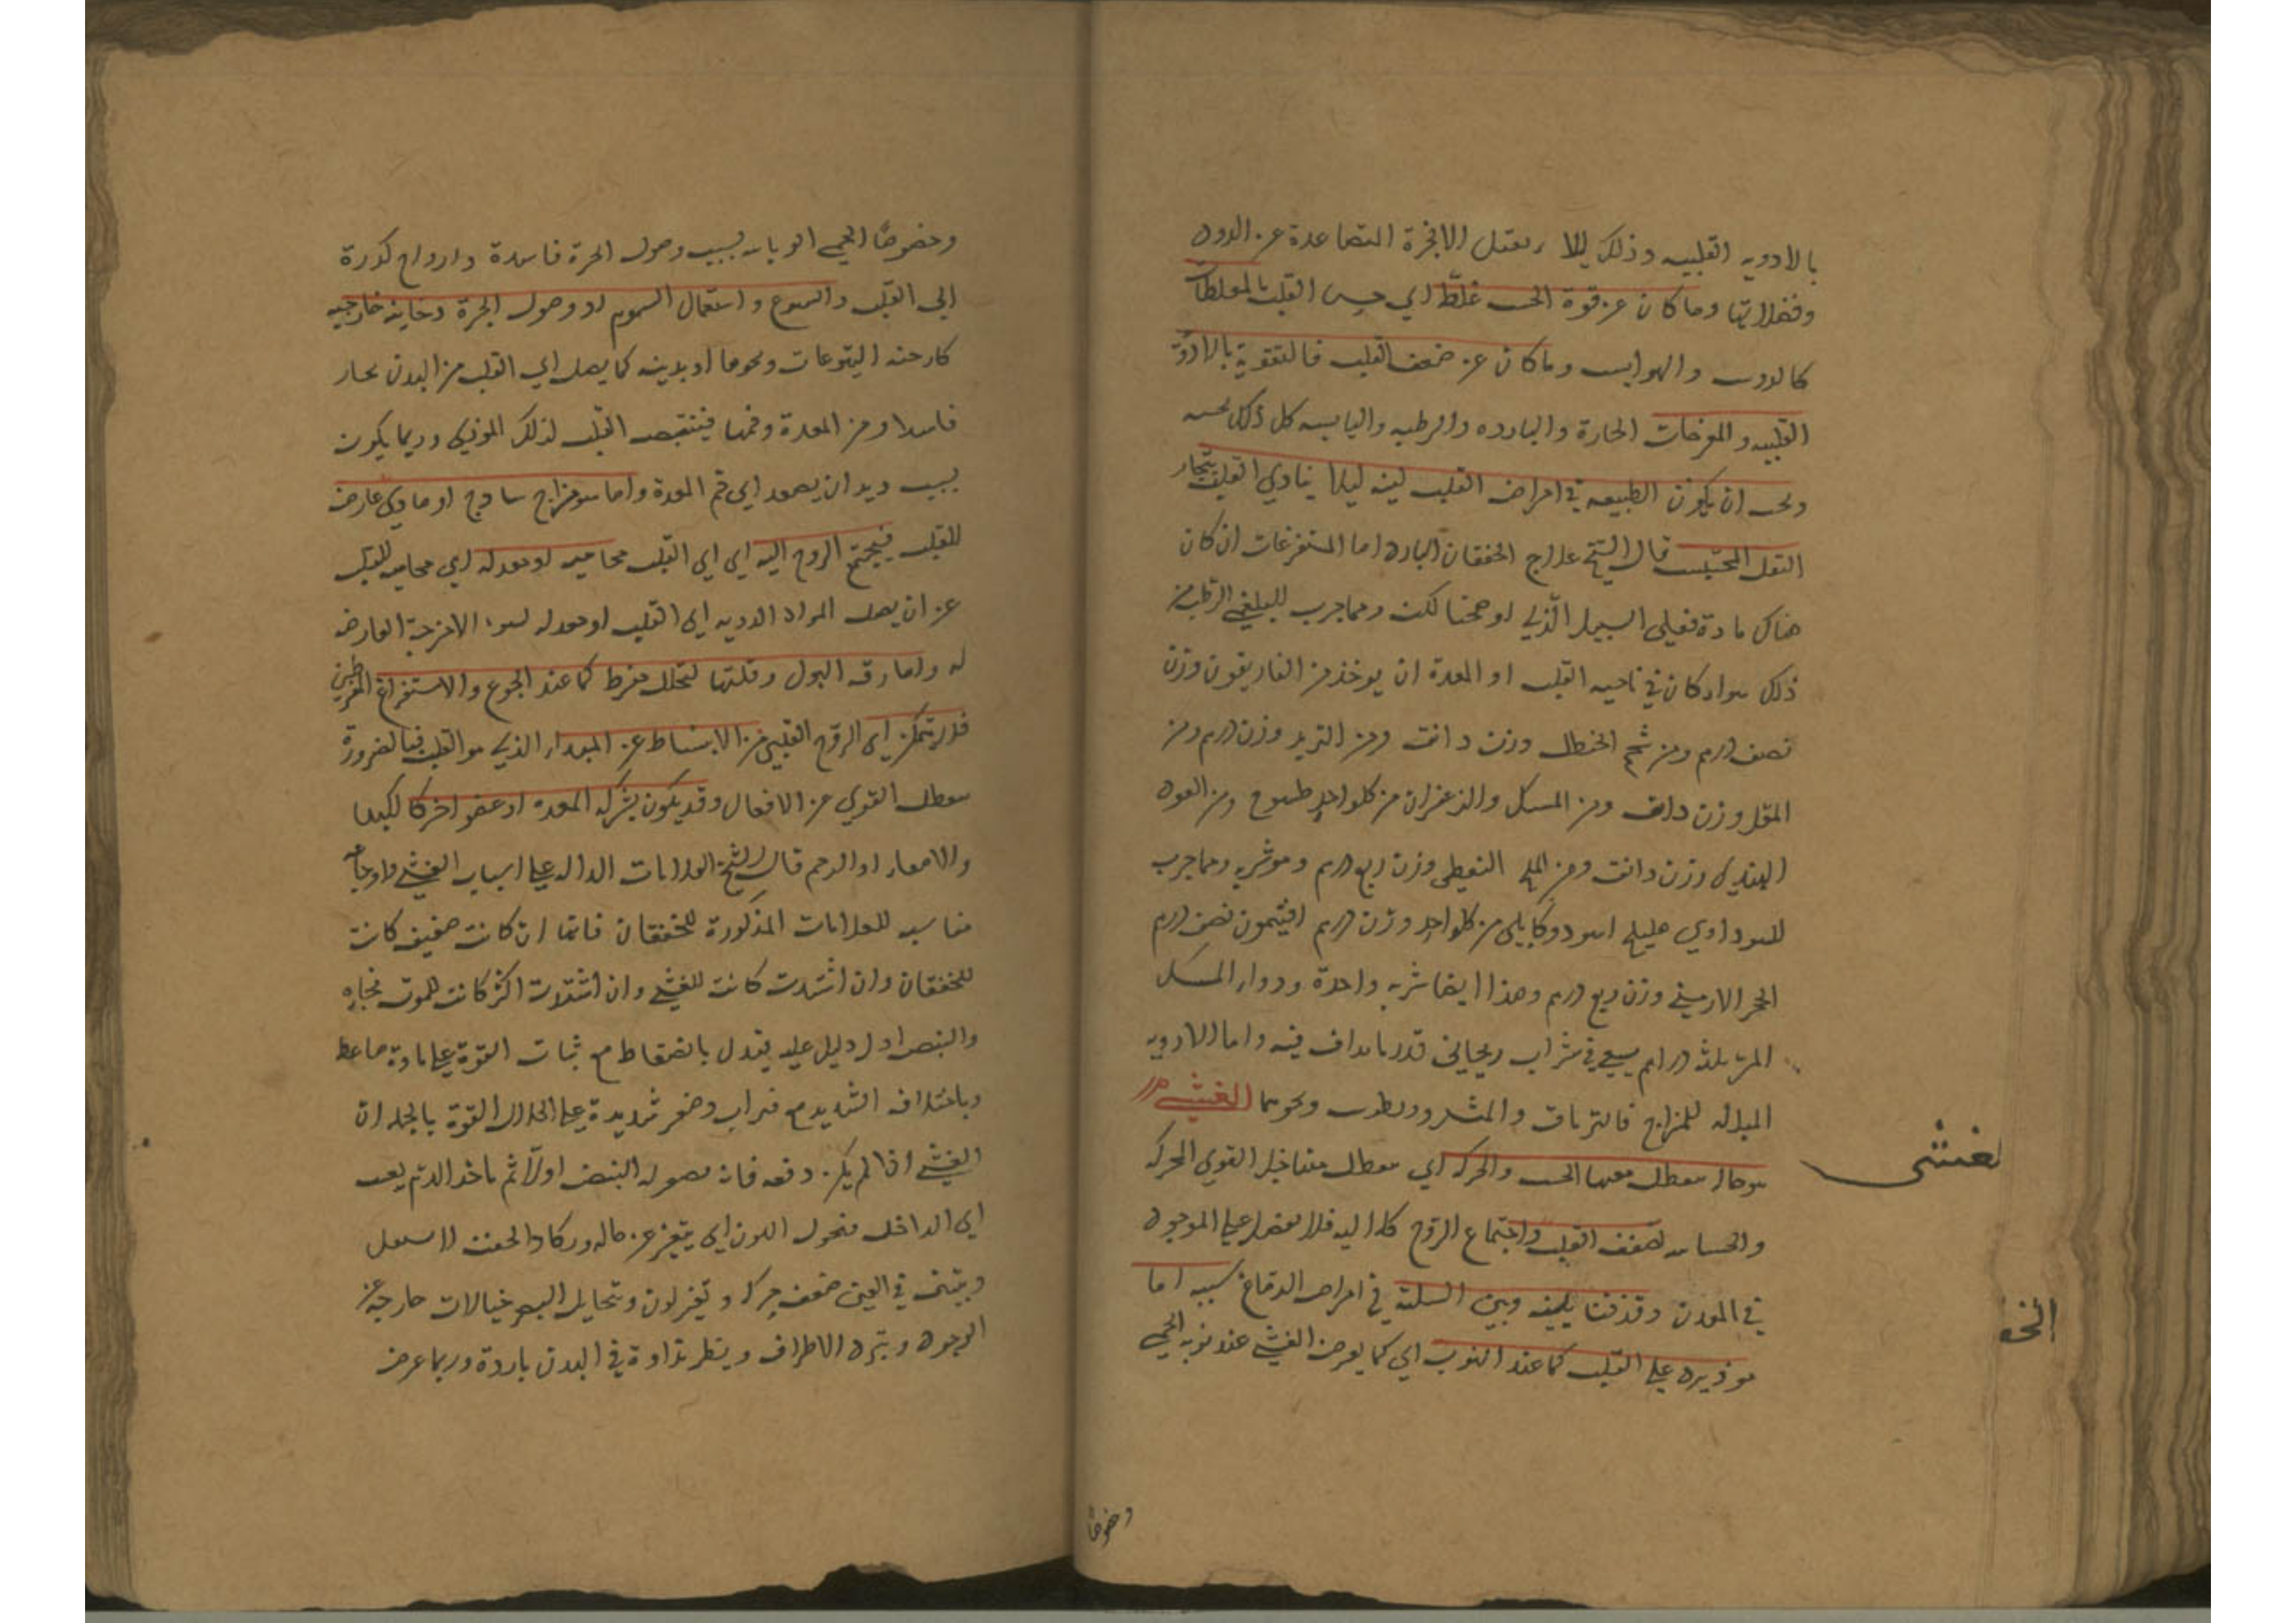 بالادويه القلبيه وذلك ليلا الابخرة المتصاعدة عن الدود
وفضلاتها وما كان عن قوة الحس غلظ اي حس القلب بالمغلظات
كالروس والهرايس وما كان عن ضعف القلب فالتقوية بالادوية
القلبيه والمفرحات الحارة والبارده والرطبه واليابسه كل ذلك بحسبه
ويجب ان يكون الطبيعه في امراض القلب لينه ليلا يتاذي القلب ببخار
الثفل المحتبس قال الشيخ علاج الخفقان البارد اما المستفرغات ان كان
هناك مادة فعلى السبيل الذي اوضحنا لك ومما جرب للبلغمي الرطب من
ذلك سواء كان في ناحيه القلب او المعدة ان يوخذ من الغاريقون وزن
نصف درهم ومن شحم الحنظل وزن دانق ومن التربد وزن درهم ومن
المقل وزن دانق ومن المسك والزعفران من كل واحد طسوج ومن العود
الهندي وزن دانق ومن الملح النفطي وزن ربع درهم وهو شربه ومما جرب
للسوداوي هليلج اسود وكابلي من كل واحد وزن درهم افتيمون نصف درهم
الحجر الارميني وزن ربع درهم وهذا ايضا شربه واحدة ودواء المسك
المر ثلثه دراهم يسقي في شراب ريحاني قدر ما يداف فيه واما الادويه
المبدله للمزاج فالترياق والمثروديطوس ونحوهما الغشي
هو حال تعطل معها الحس والحركه اي تعطل القوي المحركه
والحساسه لضعف القلب واجتماع الروح كله اليه فلا يفضل علي الموجود
في المعدن وقد فرقنا بينه وبين السكته في امراض الدماغ سببه اما
علي القلب كما عند النوب اي كما يعرض الغشي عند نوبه الحمي
لغشى
الخ
وخصوصًا
وخصوصًا الحمي الوبايه بسبب وصول ابخرة فاسدة وارواح كدرة
الي القلب واللسوع واستعمال السموم او وصول ابخرة دخانيه خارجيه
اليتوعات ونحوها او بدنيه كما يصل الي القلب من البدن بخار
فاسد او من المعدة وفمها فينقبض القلب لذلك الموذي وربما يكون
بسبب ديدان يصعد الي فم المعدة واما سو مزاج ساذج او مادي عارض
للقلب فيجتمع الروح اليه اي الي القلب محاميه او معدله اي محاميه للقلب
عن ان يصل المواد الرديه الي القلب او معدله لسوء الامزجة العارضه
له واما رقه البول وقلتها لتحلل مفرط كما عند الجوع والاستفراغ المفرطين
فلا يتمكن اي الروح القلبي من الانبساط عن المبدا الذي هو القلب فبالضرورة
تعطل القوي عن الافعال وقد يكون بشركه المعده او عضو اخر كالكبد
والامعاء او الرحم قال الشيخ العلامات الداله علي اسباب الغشي واوجاعه
مناسبه للعلامات المذكورة للخفقان فانها ان كانت ضعيفه كانت
للخفقان وان اشتدت كانت للغشي وان اشتدت اكثر كانت للموت فجاءه
والنبض ادل دليل عليه يتدل بانضغاطه مع ثبات القوة علي مادة ضاغطه
وباختلافه الشديد مع فترات وصغر شديدة علي انحلال القوة بالجمله ان
الغشي اذا لم يكن دفعه فانه يصغر له النبض اولا ثم ياخذ الدم يغيب
الي الداخل فتحول اللون اي يتغير عن حاله ويكاد الجفن لا يستقل
ويتبين في العين ضعف حركه وتغير لون ويتخايل البصر خيالات خارجه عن
الوجود ويتبرد الاطراف ويظهر نداوة في البدن باردة وربما عرض